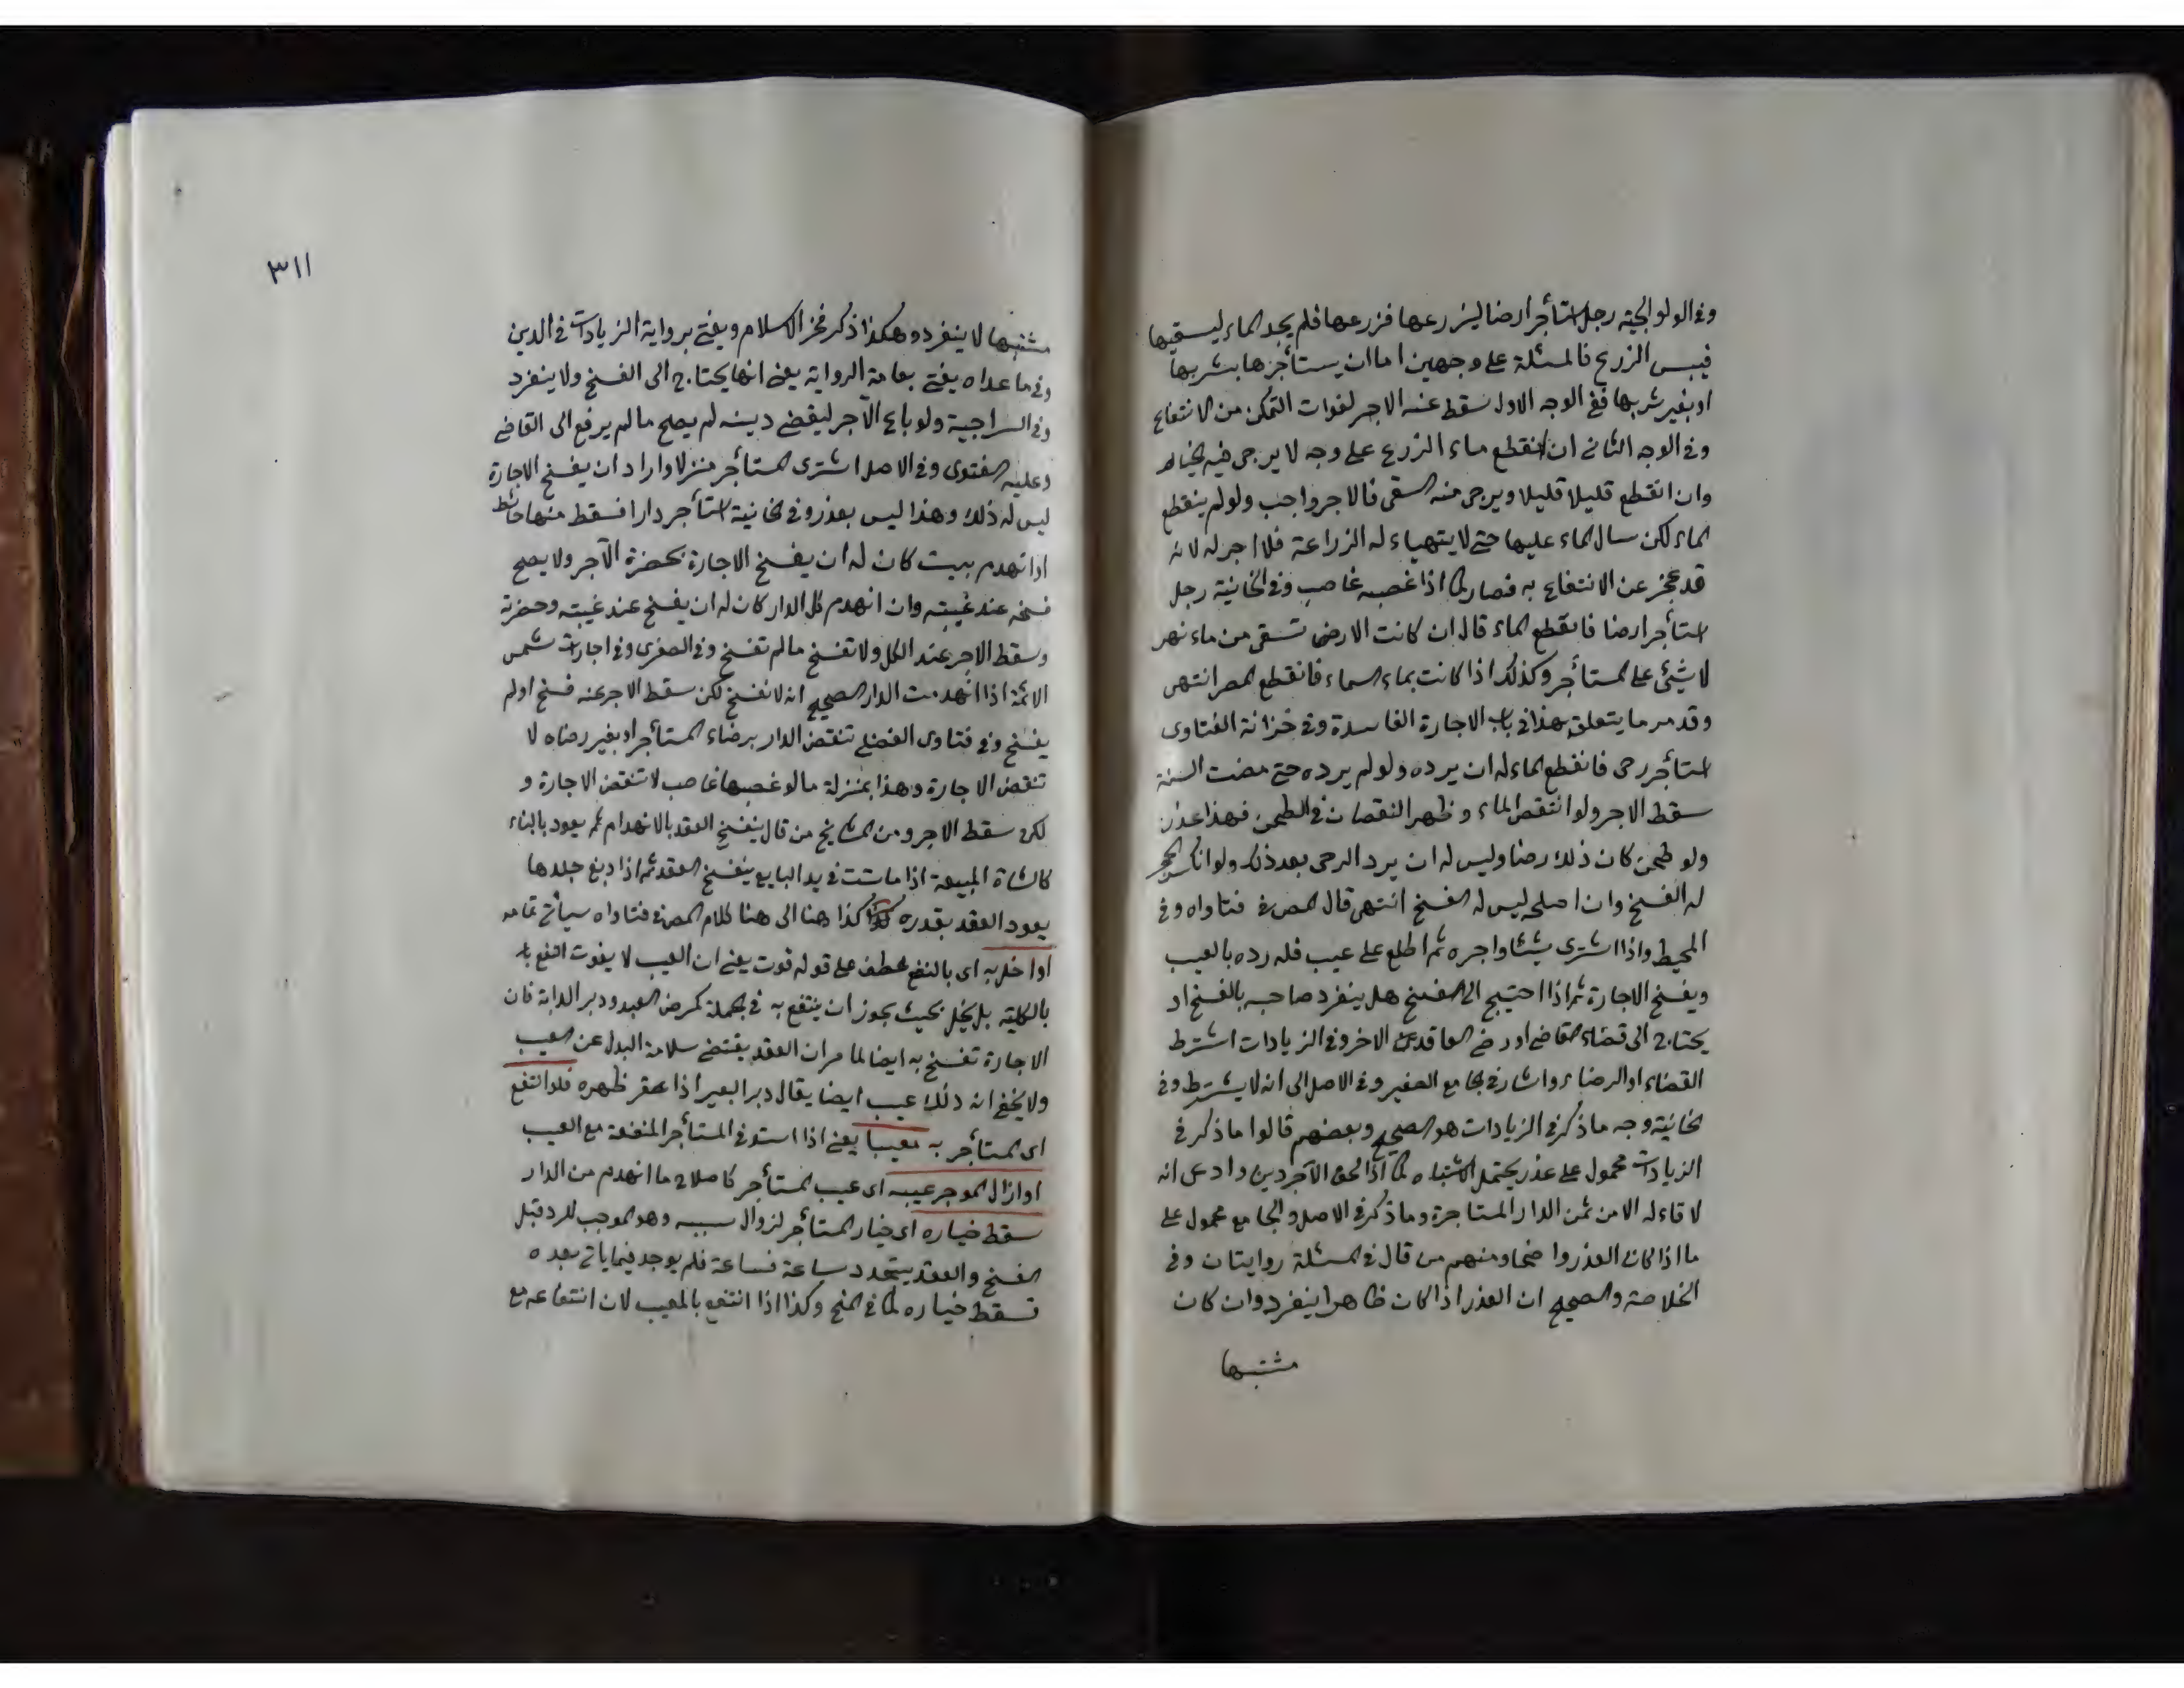 وفي الولوالجية رجل استأجر ارضا ليزرعها فزرعها فلم يجد الماء ليسقيها
فيبس الزرع فالمسئلة على وجهين اما ان يستأجرها بشربها
او بغير شربها ففي الوجه الاول سقط عنه الاجر لفوات التمكن من الانتفاع
وفي الوجه الثاني ان انقطع ماء الزرع على وجه لا يرجى فيه الخيار
وان انقطع قليلا قليلا ويرجى منه السقى فالاجر واجب ولو لم ينقطع
الماء لكن سال الماء عليها حتى لا يتهياء له الزراعة فلا اجر له لانه
قد عجز عن الانتفاع به فصار كما اذا غصبه غاصب وفي الخانية رجل
استأجر ارضا فانقطع الماء قال ان كانت الارض تسقى من ماء نهر
لا شيئ على المستأجر وكذلك اذا كانت بماء السماء فانقطع المطر انتهى
وقد مر ما يتعلق بهذا في باب الاجارة الفاسدة وفي خزانة الفتاوى
استأجر رحى فانقطع الماء له ان يرده ولو لم يرده حتى مضت السنة
سقط الاجر ولو انتقص الماء وظهر النقصان في الطحن فهذا عذر
ولو طحن كان ذلك رضا وليس له ان يرد الرحى بعد ذلك ولو انكسر الحجر
له الفسخ وان اصلحه ليس له الفسخ انتهى قال المص في فتاواه وفي
المحيط واذا اشترى شيئا واجره ثم اطلع على عيب فله رده بالعيب
ويفسخ الاجارة ثم اذا احتيج الى الفسخ هل ينفرد صاحبه بالفسخ او
يحتاج الى قضاء القاضي او رضى العاقد الاخر وفي الزيادات اشترط
القضاء او الرضاء واشار في الجامع الصغير وفي الاصل الى انه لا يشترط وفي
الخانية وجه ما ذكر في الزيادات هو الصحيح وبعضهم قالوا ما ذكر في
الزيادات محمول على عذر يحتمل الاشتباه كما اذا لحق الآجر دين وادعى انه
لا قاء له الا من ثمن الدار المستاجرة وما ذكر في الاصل والجامع محمول على
ما اذا كان العذر واضحا ومنهم من قال في المسئلة روايتان وفي
الخلاصة والصحيح ان العذر اذا كان ظاهرا ينفرد وان كان
مشتبها
٣١١
مشتبها لا ينفرد وهكذا ذكر فخر الاسلام ويفتى برواية الزيادات في الدين
وفي ما عداه يفتى بعامة الرواية يعني انها يحتاج الى الفسخ ولا ينفرد
وفي السراجية ولو باع الآجر ليقضي دينه لم يصح ما لم يرفع الى القاضي
وعليه الفتوى وفي الاصل اشترى المستأجر منزلا واراد ان يفسخ الاجارة
ليس له ذلك وهذا ليس بعذر وفي الخانية استأجر دارا فسقط منها حائط
او انهدم بيت كان له ان يفسخ الاجارة بحضرة الآجر ولا يصح
فسخه عند غيبته وان انهدم كل الدار كان له ان يفسخ عند غيبته وحضرته
وسقط الاجر عند الكل ولا تفسخ ما لم تفسخ وفي الصغرى وفي اجارات شمس
الائمة اذا انهدمت الدار الصحيح انه لا تفسخ لكن سقط الاجر عنه فسخ او لم
يفسخ وفي فتاوى الفضلي تنقض الدار برضاء المستأجر او بغير رضاه لا
تنقض الاجارة وهذا بمنزلة ما لو غصبها غاصب لا تنقض الاجارة و
لكن سقط الاجر ومن المشايخ من قال ينفسخ العقد بالانهدام ثم يعود بالبناء
كالشاة المبيعة اذا ماتت في يد البايع ينفسخ العقد ثم اذا دبغ جلدها
يعود العقد بقدره كذا هنا الى هنا كلام المص في فتاواه سيأتي تمامه
او اخل به اى بالنفع عطف على قوله فوت يعني ان العيب لا يفوت النفع به
بالكلية بل يخل بحيث يجوز ان ينتفع به في الجملة كمرض العبد ودبر الدابة فان
الاجارة تفسخ به ايضا لما مر ان العقد يقتضي سلامة البدل عن العيب
ولا يخفى انه ذلك عيب ايضا يقال دبر البعير اذا عقر ظهره فلو انتفع
اى المستأجر به معيبا يعني اذا استوفى المستأجر المنفعة مع العيب
او ازال الموجر عيبه اى عيب المستأجر كاصلاح ما انهدم من الدار
سقط خياره اى خيار المستأجر لزوال سببه وهو الموجب للرد قبل
الفسخ والعقد يتجدد ساعة فساعة فلم يوجد فيما ياتي بعده
فسقط خياره كما في المنح وكذا اذا انتفع بالمعيب لان انتفاعه مع